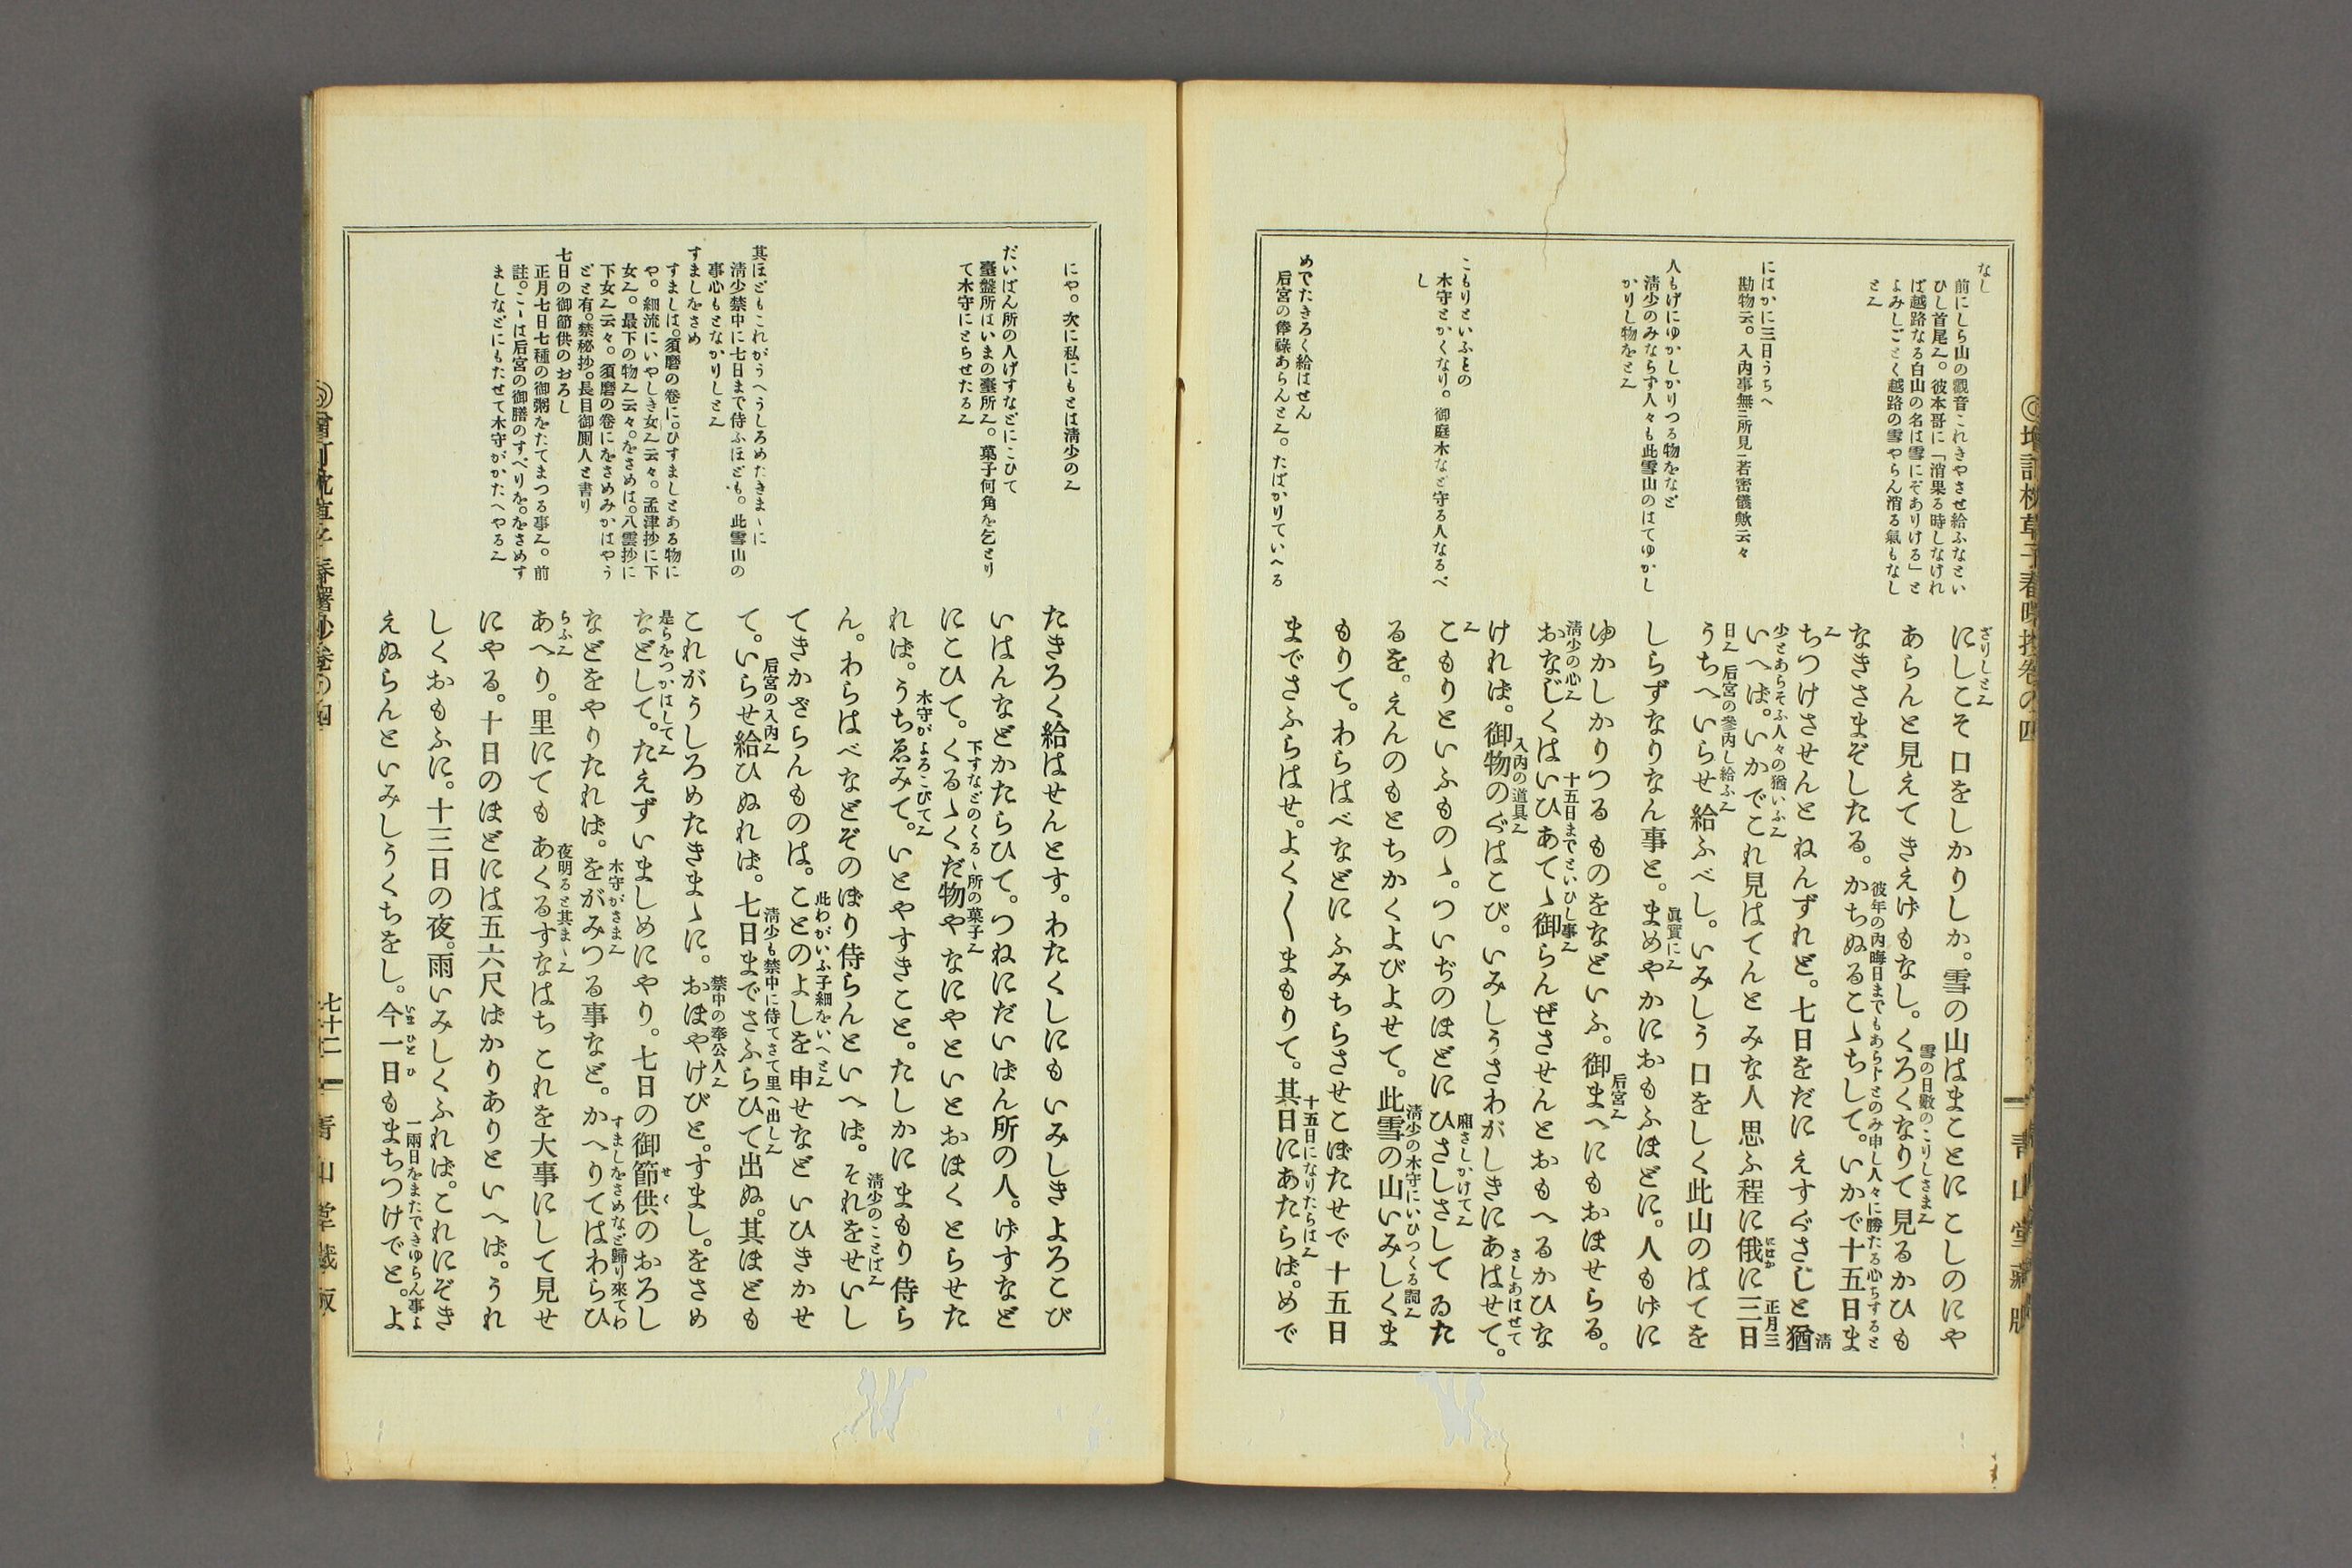 なし
前にしら山の觀音これきやさせ給ふなとい
ひし首尾〻。彼本哥に「消果る時しなけれ
ば越路なる白山の名は雪にぞありける」と
よみしごとく越路の雪やらん消る氣もなし
と〻
にはかに三日うちへ
勘物云。入内事無ニ所見一若密儀歟云々
人もげにゆかしかりつる物をなど
淸少のみならず人々も此雪山のはてゆかし
かりし物をと〻
こもりといふものゝ
木守とかくなり。御庭木など守る人なるべ
し
めでたきろく給はせん
后宮の俸祿あらんと〻。たばかりていへる
ざりしと〻
にしこそ口をしかりしか。雪の山はまことにこしのにや
あらんと見えてきえげもなし。くろくなりて見るかひも
雪の日數のこりしさま〻
なきさまぞしたる。かちぬるこゝちして。いかで十五日ま
彼年の内晦日までもあらじとのみ申し人々に勝たる心ちすると
〻
ちつけさせんとねんずれど。七日をだにえすぐさじと猶
淸
少とあらそふ人々の猶いふ〻
いへば。いかでこれ見はてんとみな人思ふ程に俄に三日
にはか
正月三
日〻 后宮の參内し給ふ〻
うちへいらせ給ふべし。いみしう口をしく此山のはてを
しらずなりなん事と。まめやかにおもふほどに。人もげに
眞實に〻
ゆかしかりつるものをなどいふ。御まへにもおほせらる。
后宮〻
淸少の心〻 十五日までといひし事〻
おなじくはいひあてゝ御らんぜさせんとおもへるかひな
けれは。御物のぐはこび。いみしうさわがしきにあはせて。
入内の道具〻 さしあはせて
〻
こもりといふものゝ。ついぢのほどにひさしさしてゐた
廂さしかけて〻
るを。えんのもとちかくよびよせて。此雪の山いみしくま
淸少の木守にいひつくる詞〻
もりて。わらはべなどにふみちらさせこぼたせで十五日
までさふらはせ。よく〱まもりて。其日にあたらば。めで
十五日になりたらは〻
にや。次に私にもとは淸少の〻
だいばん所の人げすなどにこひて
臺盤所はいまの臺所〻。菓子何角を乞とり
て木守にとらせたる〻
其ほどもこれがうへうしろめたきまゝに
淸少禁中に七日まで侍ふほども。此雪山の
事心もとなかりしと〻
すましをさめ
すましは。須磨の卷に。ひすましとある物に
や。細流にいやしき女〻云々。孟津抄に下
女〻。最下の物〻云々。をさめは。八雲抄に
下女〻云々。須磨の卷にをさめみかはやう
どと有。禁秘抄。長目御厠人と書り
七日の御節供のおろし
正月七日七種の御粥をたてまつる事〻。前
註。こゝは后宮の御膳のすべりを。をさめす
ましなどにもたせて木守がかたへやる〻
たきろく給はせんとす。わたくしにもいみしきよろこび
いはんなどかたらひて。つねにだいばん所の人。げすなど
にこひて。くるゝくだ物やなにやといとおほくとらせた
下すなどのくるゝ所の菓子〻
れば。うちゑみて。いとやすきこと。たしかにまもり侍ら
木守がよろこびて〻
ん。わらはべなどぞのぼり侍らんといへは。それをせいし
淸少のことば〻
てきかざらんものは。ことのよしを申せなどいひきかせ
此わがいふ子細をいへと〻
て。いらせ給ひぬれば。七日までさふらひて出ぬ。其ほども
后宮の入内〻 淸少も禁中に侍てさて里へ出し〻
これがうしろめたきまゝに。おほやけびと。すまし。をさめ
禁中の奉公人〻
是らをつかはして〻
などして。たえずいましめにやり。七日の御節供のおろし
せく
などをやりたれは。をがみつる事など。かへりてはわらひ
木守がさま〻 すましをさめなど歸り來てわ
らふ〻
あへり。里にてもあくるすなはちこれを大事にして見せ
夜明ると其まゝ〻
にやる。十日のほどには五六尺ばかりありといへば。うれ
しくおもふに。十三日の夜。雨いみしくふれば。これにぞき
えぬらんといみしうくちをし。今一日もまちつけでと。よ
いまひとひ
一兩日をまたできゆらん事よ
七十二
靑山堂藏版